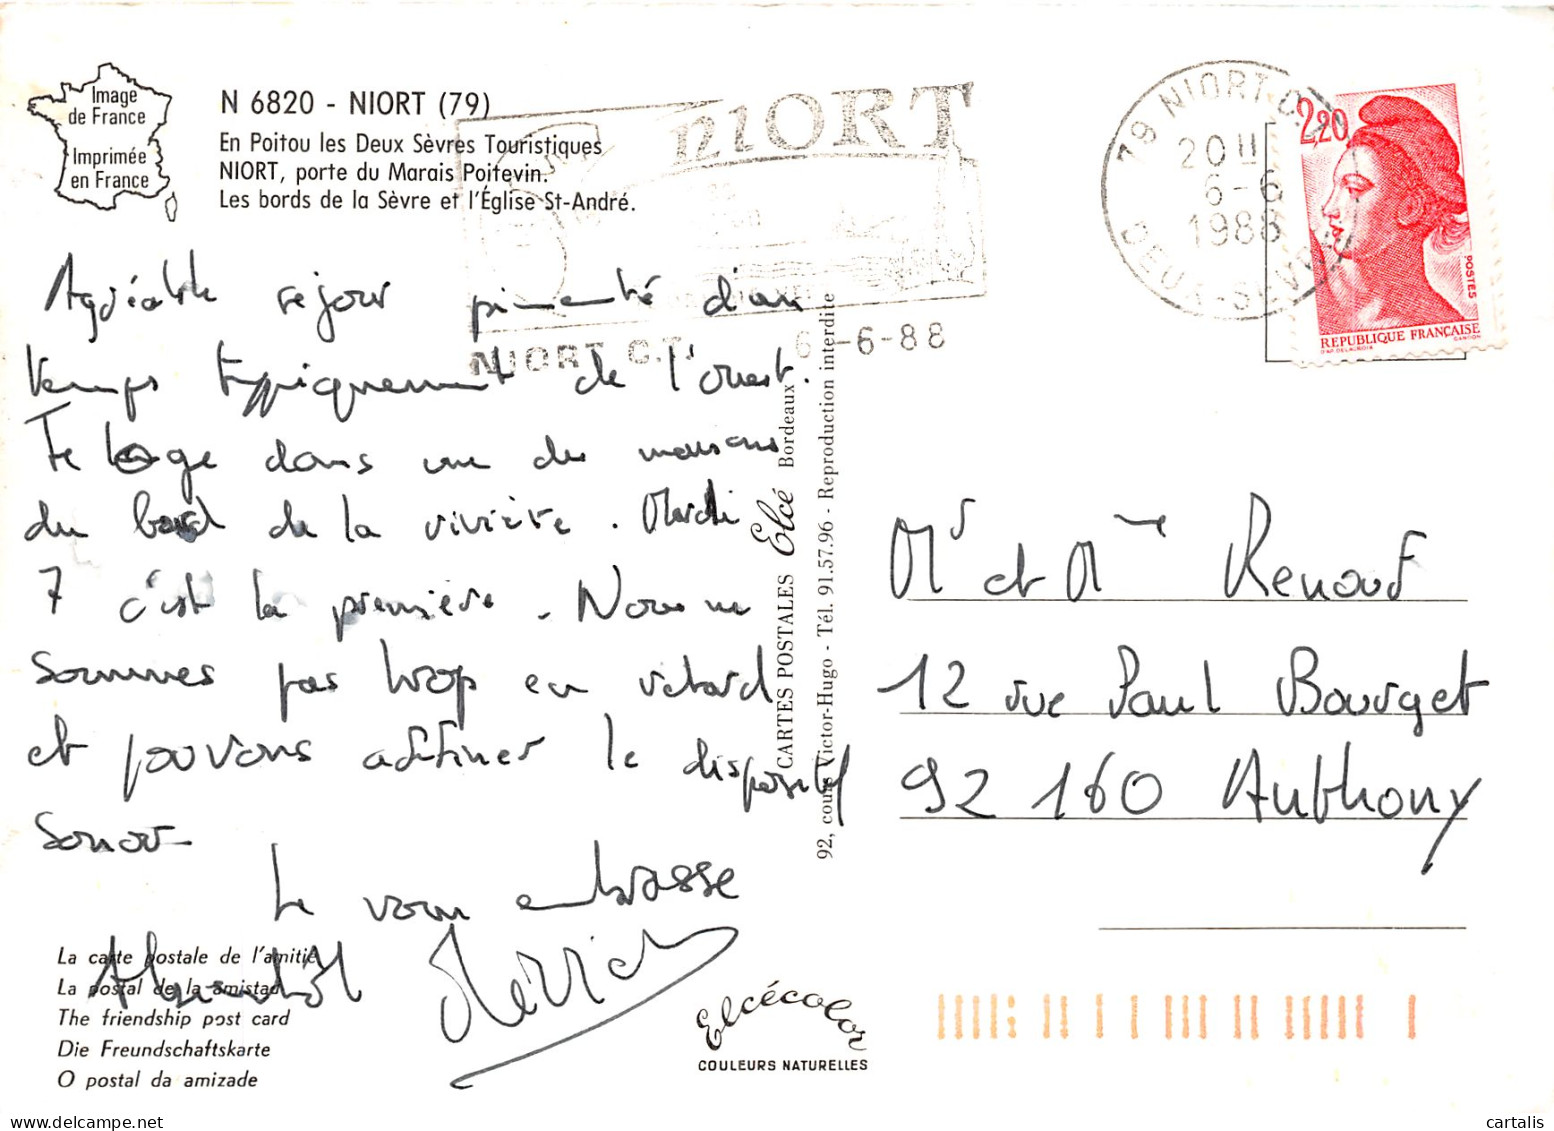 Image
de France
Imprimée
en France
N 6820 - NIORT (79)
En Poitou les Deux Sèvres Touristiques
NIORT, porte du Marais Poitevin.
Les bords de la Sèvre et l'Église St-André.
NIORT
NIORT C.T. 6-6-88
79 NIORT C.T.
20 H
6-6
1988
DEUX-SEVRES
2,20
POSTES
REPUBLIQUE FRANÇAISE
D'AP. DELACROIX GANDON
Agréable séjour pimenté d'un
temps typiquement de l'ouest.
Je loge dans une des maisons
du bord de la rivière. Mardi
7 c'est la première. Nous ne
sommes pas trop en retard
et pouvons affiner le dispositif
sonore
Je vous embrasse
CARTES POSTALES Elcé Bordeaux
92, cours Victor-Hugo - Tél. 91.57.96 - Reproduction interdite
Mr et Mme Renouf
12 rue Paul Bourget
92 160 Anthony
La carte postale de l'amitié
La postal de la amistad
The friendship post card
Die Freundschaftskarte
O postal da amizade
Elcécolor
COULEURS NATURELLES
cartalis